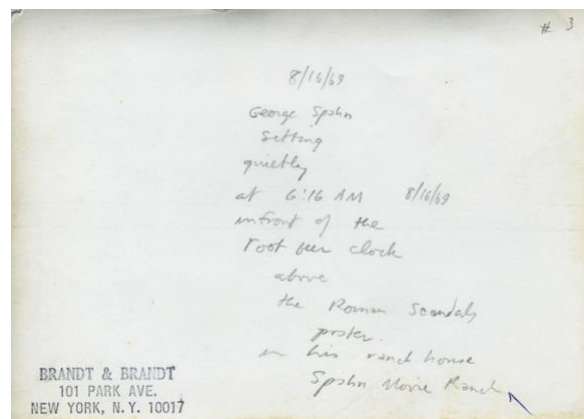 # 3
8/16/69
George Spahn
Sitting
quietly
at 6:16 AM 8/16/69
infront of the
root beer clock
above
the Roman Scandals
poster.
in his ranch house
Spahn Movie Ranch
BRANDT & BRANDT
101 PARK AVE.
NEW YORK, N.Y. 10017